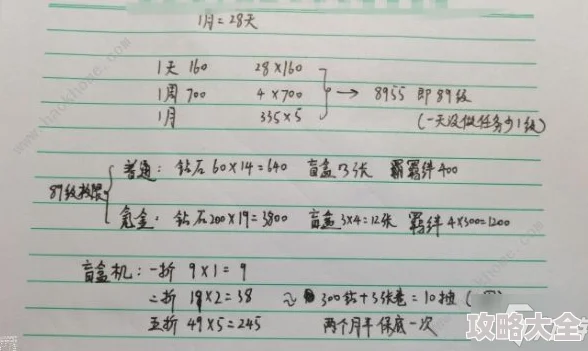 1月=28天
1天 160 28×160
1周 700 4×700 → 8955 即89级
1月 335×5 (一天没做任务少1级)
89级奖励
普通: 钻石60×14=640 盲盒3张 羁绊400
氪金: 钻石200×19=3800 盲盒3×4=12张 羁绊4×300=1200
盲盒机: 一折 9×1=9
二折 19×2=38 ≈ 300钻+3张卷=10抽 (
五折 49×5=245 两个月半保底一次
攻略大全